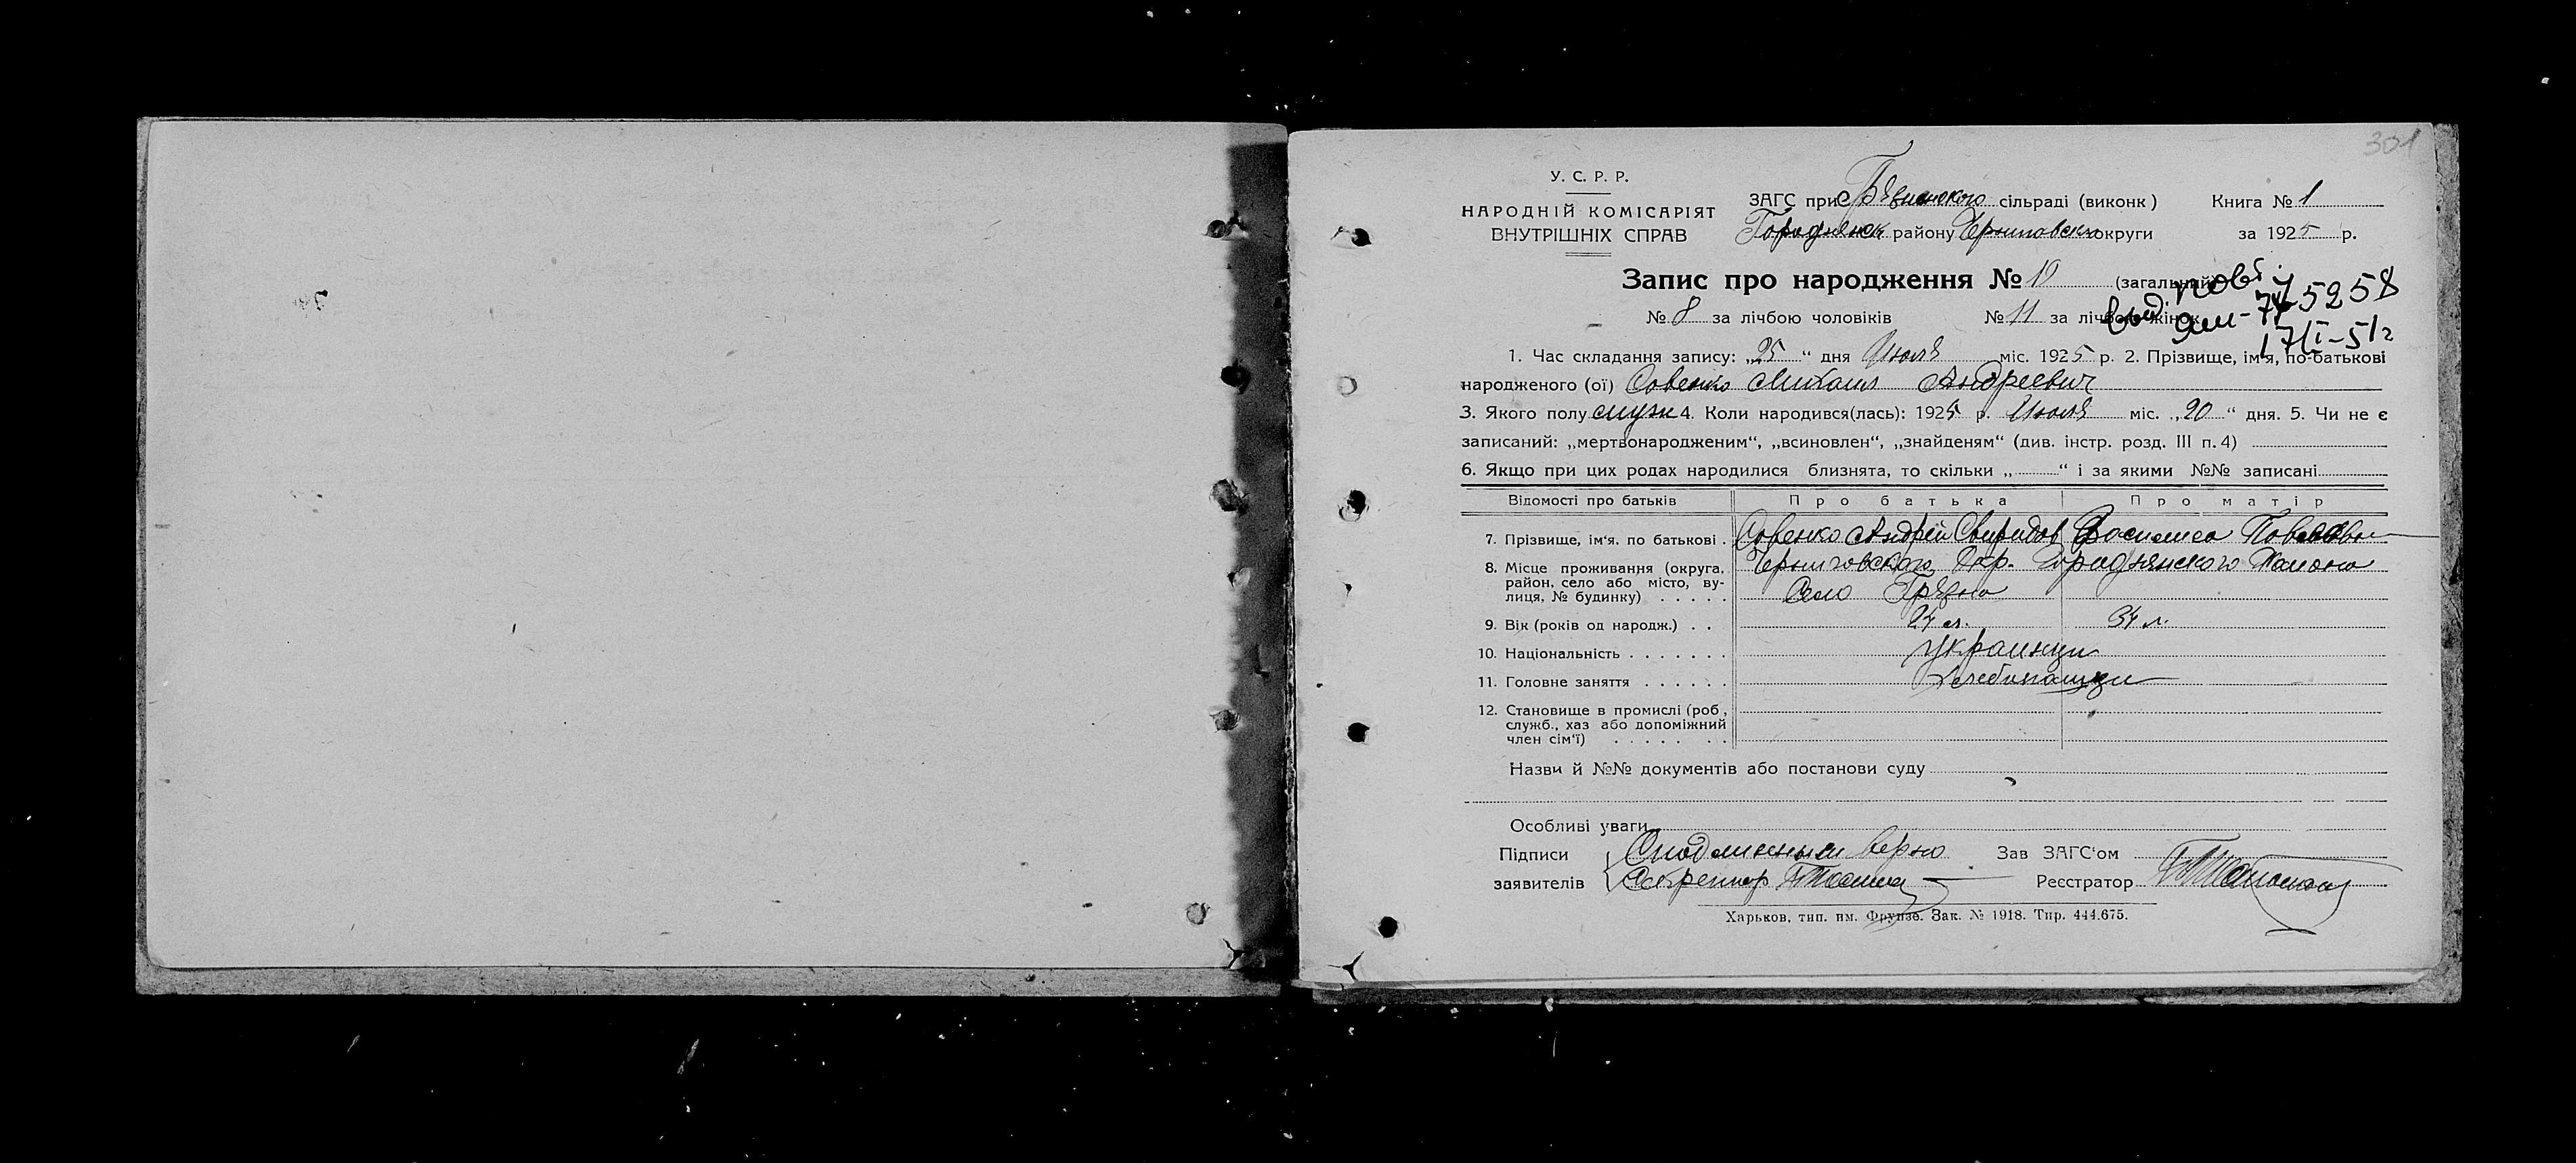 301
У. С. Р. Р.
НАРОДНІЙ КОМІСАРІЯТ
ВНУТРІШНІХ СПРАВ
ЗАГС при сільраді (виконк)
Городнянск району Черниговского округи
Книга № 1
за 1925 р.
Запис про народження № 19 (загальний)
№ 8 за лічбою чоловіків № 11 за лічбою жінок
повт
74-5258
17/I-51г
1. Час складання запису: „25“ дня Июля міс. 1925 р. 2. Прізвище, ім'я, по-батькові
народженого (ої) Совенко Михаил Андреевич
3. Якого полу муж 4. Коли народився(лась): 1925 р. Июля міс. „20“ дня. 5. Чи не є
записаний: „мертвонародженим“, „всиновлен“, „знайденям“ (див. інстр. розд. III п. 4)
6. Якщо при цих родах народилися близнята, то скільки „ “ і за якими №№ записані
Відомості про батьків Про батька Про матір
7. Прізвище, ім'я, по батькові . Совенко Андрей Свиридов Василиса Павловна
8. Місце проживання (округа, Черниговского Окр. Городнянского Района
район, село або місто, ву-
лиця, № будинку) . . . . . Село Грязна
9. Вік (років од народж.) . . 24 л. 34 л.
10. Національність . . . . . . . украинци
11. Головне заняття . . . . . . Хлебопашци
12. Становище в промислі (роб,
служб., хаз або допоміжний
член сім'ї) . . . . . . .
Назви й №№ документів або постанови суду
Особливі уваги
Підписи С подлинным верно Зав ЗАГС'ом
заявителів Секретарь Реєстратор
Харьков, тип. им. Фрунзе. Зак. № 1918. Тир. 444.675.